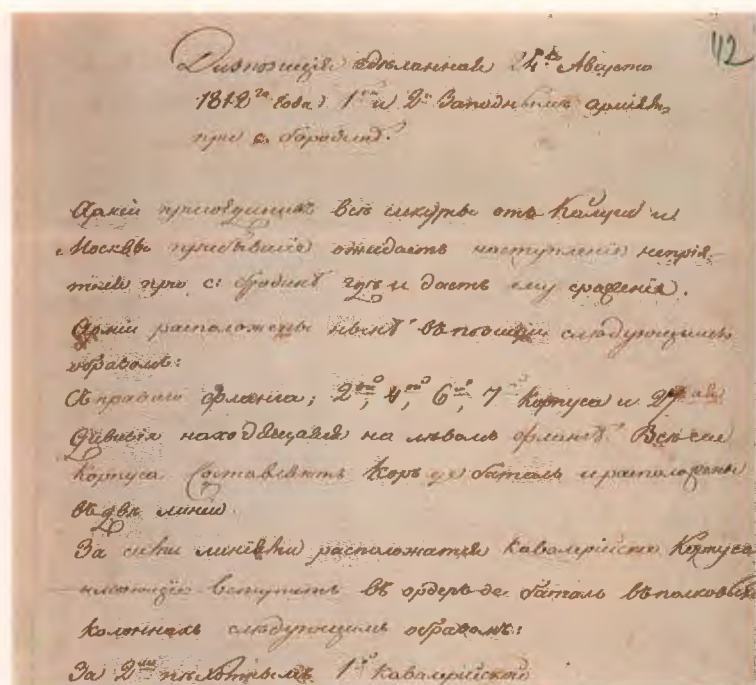 42
Диспозиция сдѣланная 24го Августа
1812го года. 1ой и 2й Западнымъ арміямъ
при с. бородинѣ.
Арміи присоединивъ всѣ секурсы отъ Калуги и
Москвы прибывшіе ожидаютъ наступленія непрія-
теля при с: бородинѣ гдѣ и дастъ ему сраженія.
Арміи расположены нынѣ въ позиціи слѣдующимъ
образомъ:
Съ праваго фланга; 2ой, 4ой, 6ой, 7 Корпуса и 27
дивизія находящаяся на лѣвомъ флангѣ. Всѣ сіи
Корпуса Составляютъ Коръ де баталь и расположены
въ двѣ линіи.
За сими линіями расположатся Кавалерійскіе Корпуса
имѣющіе вступить въ ордеръ де баталь въ полковыхъ
колоннахъ слѣдующимъ образомъ:
За 2мъ пѣхотнымъ 1й Кавалерійской